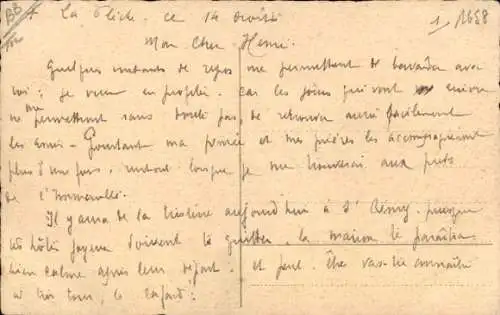 BB
La Flèche, ce 14 
1 1658
Mon cher Henri.
Quelques instants de repos me permettent de bavarder avec
toi; je veux en profiter. car les jours qui vont suivre
ne me permettront sans doute pas, de retrouver aussi facilement
les amis - Pourtant ma pensée et mes prières les accompagneront
plus d'une fois, surtout lorsque je me trouverai aux pieds
de l'Immaculée.
Il y aura de la tristesse aujourd'hui à St Rémy, puisque
les hôtes joyeux doivent le quitter, la maison te paraîtra
bien calme après leur départ. et peut-être vas-tu connaître
à ton tour, le cafard!